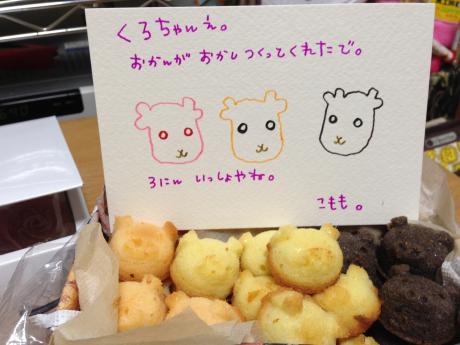 くろちゃんえ。
おかんが おかし つくってくれたで。
3にん いっしょやね。
こもも。